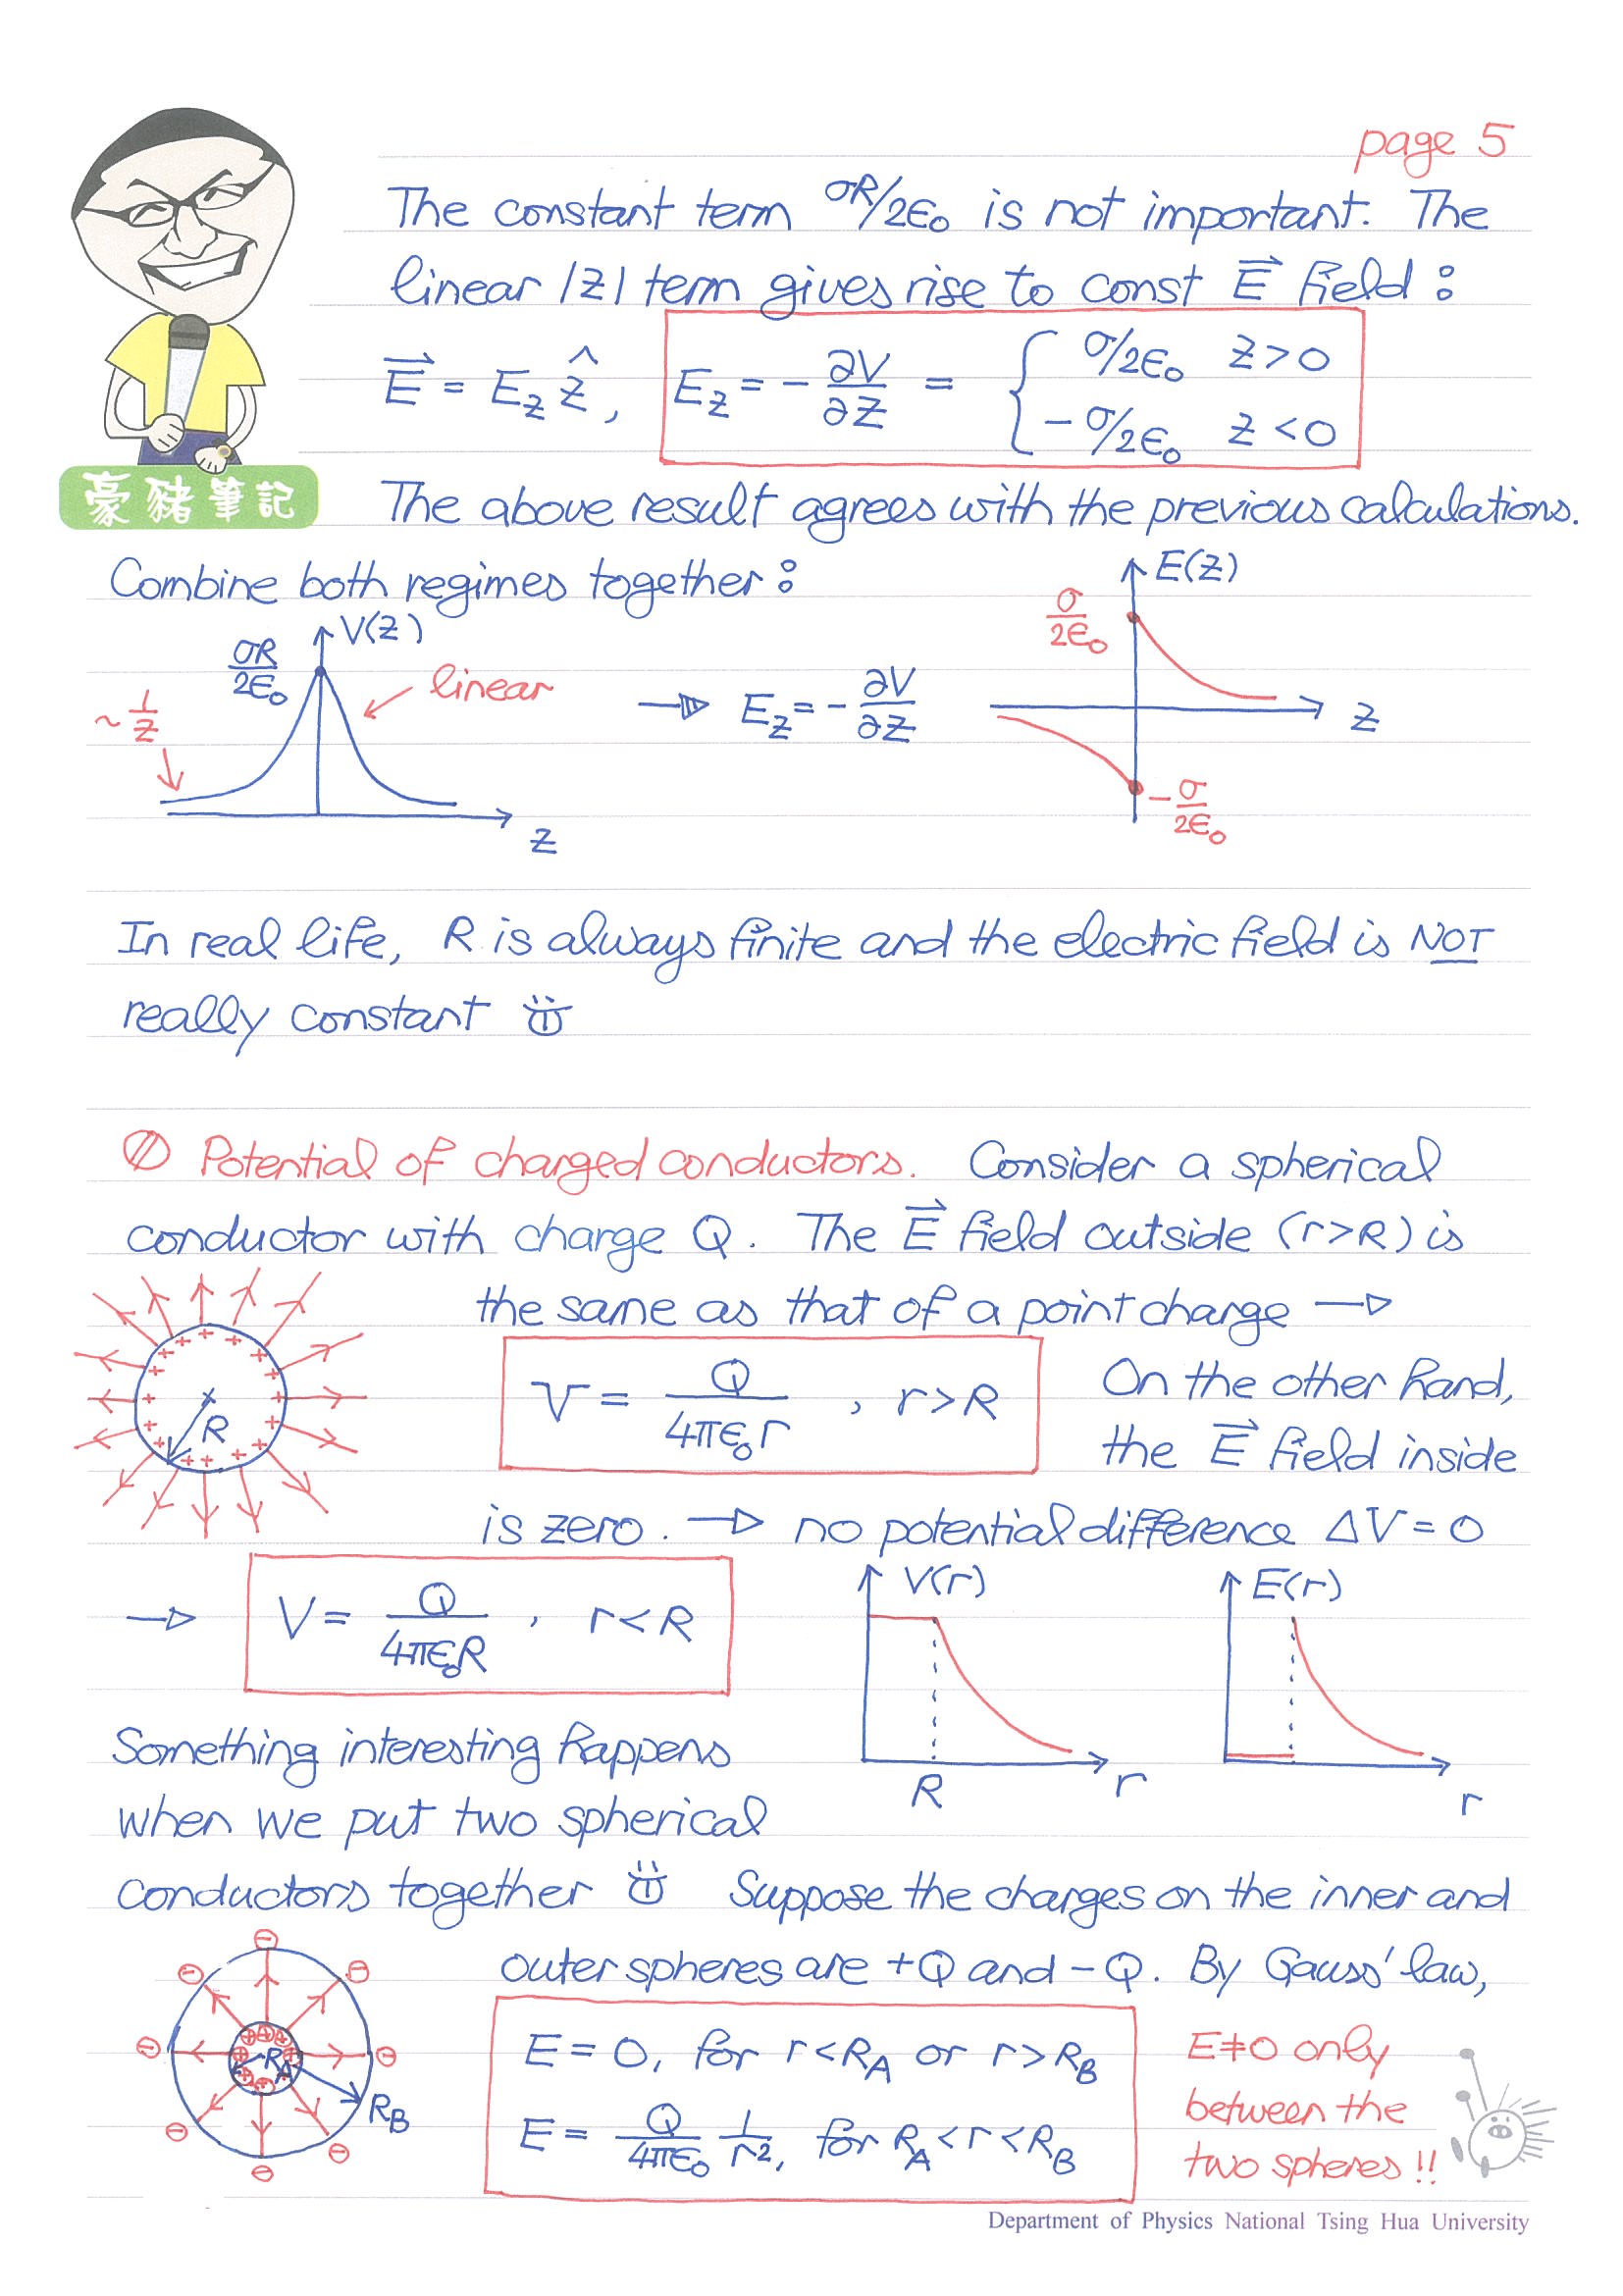 page 5
The constant term σR/2ϵ₀ is not important. The
linear |z| term gives rise to const E⃗ field :
E⃗ = E_z ẑ , E_z = - ∂V/∂z = { σ/2ϵ₀ z > 0
- σ/2ϵ₀ z < 0
豪豬筆記
The above result agrees with the previous calculations.
Combine both regimes together :
V(z)
σR/2ϵ₀
linear
~ 1/z
z
E_z = - ∂V/∂z
E(z)
σ/2ϵ₀
z
-σ/2ϵ₀
In real life, R is always finite and the electric field is NOT
really constant
Potential of charged conductors. Consider a spherical
conductor with charge Q. The E⃗ field outside (r>R) is
the same as that of a point charge →
R
V = Q/4πϵ₀r , r > R
On the other hand,
the E⃗ field inside
is zero. → no potential difference ΔV = 0
→ V = Q/4πϵ₀R , r < R
V(r)
R
r
E(r)
r
Something interesting happens
when we put two spherical
conductors together Suppose the charges on the inner and
outer spheres are +Q and -Q. By Gauss' law,
R_A
R_B
E = 0, for r < R_A or r > R_B
E = Q/4πϵ₀ 1/r², for R_A < r < R_B
E≠0 only
between the
two spheres !!
Department of Physics National Tsing Hua University